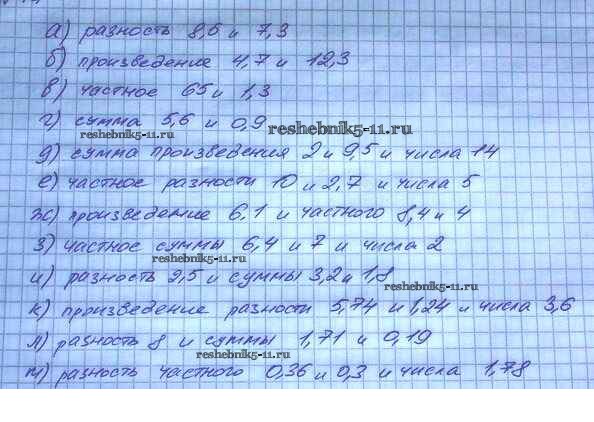 а) разность 8,6 и 7,3
б) произведение 4,7 и 12,3
в) частное 65 и 1,3
г) сумма 5,6 и 0,9 reshebnik5-11.ru
reshebnik5-11.ru
д) сумма произведения 2 и 9,5 и числа 14
е) частное разности 10 и 2,7 и числа 5
ж) произведение 6,1 и частного 8,4 и 4
з) частное суммы 6,4 и 7 и числа 2
reshebnik5-11.ru
и) разность 9,5 и суммы 3,2 и 1,8
reshebnik5-11.ru
к) произведение разности 5,74 и 1,24 и числа 3,6
л) разность 8 и суммы 1,71 и 0,19
reshebnik5-11.ru
м) разность частного 0,36 и 0,3 и числа 1,78